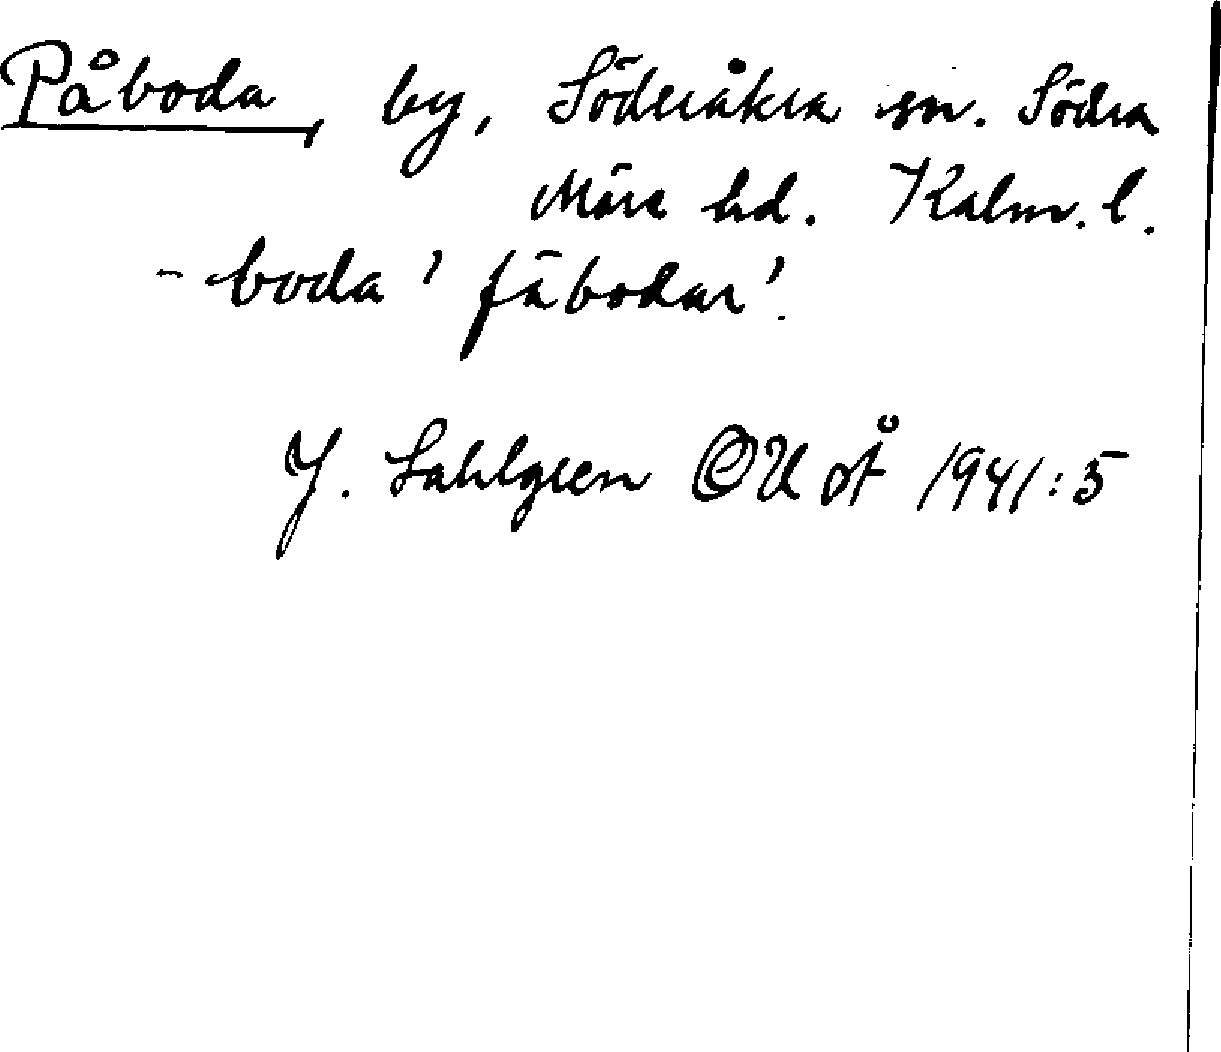 Påboda, by, Söderåkra sn. Södra
Möre hd. Kalm. l.
- boda 'fäbodar'.
J. Sahlgren OUÅ 1941:5